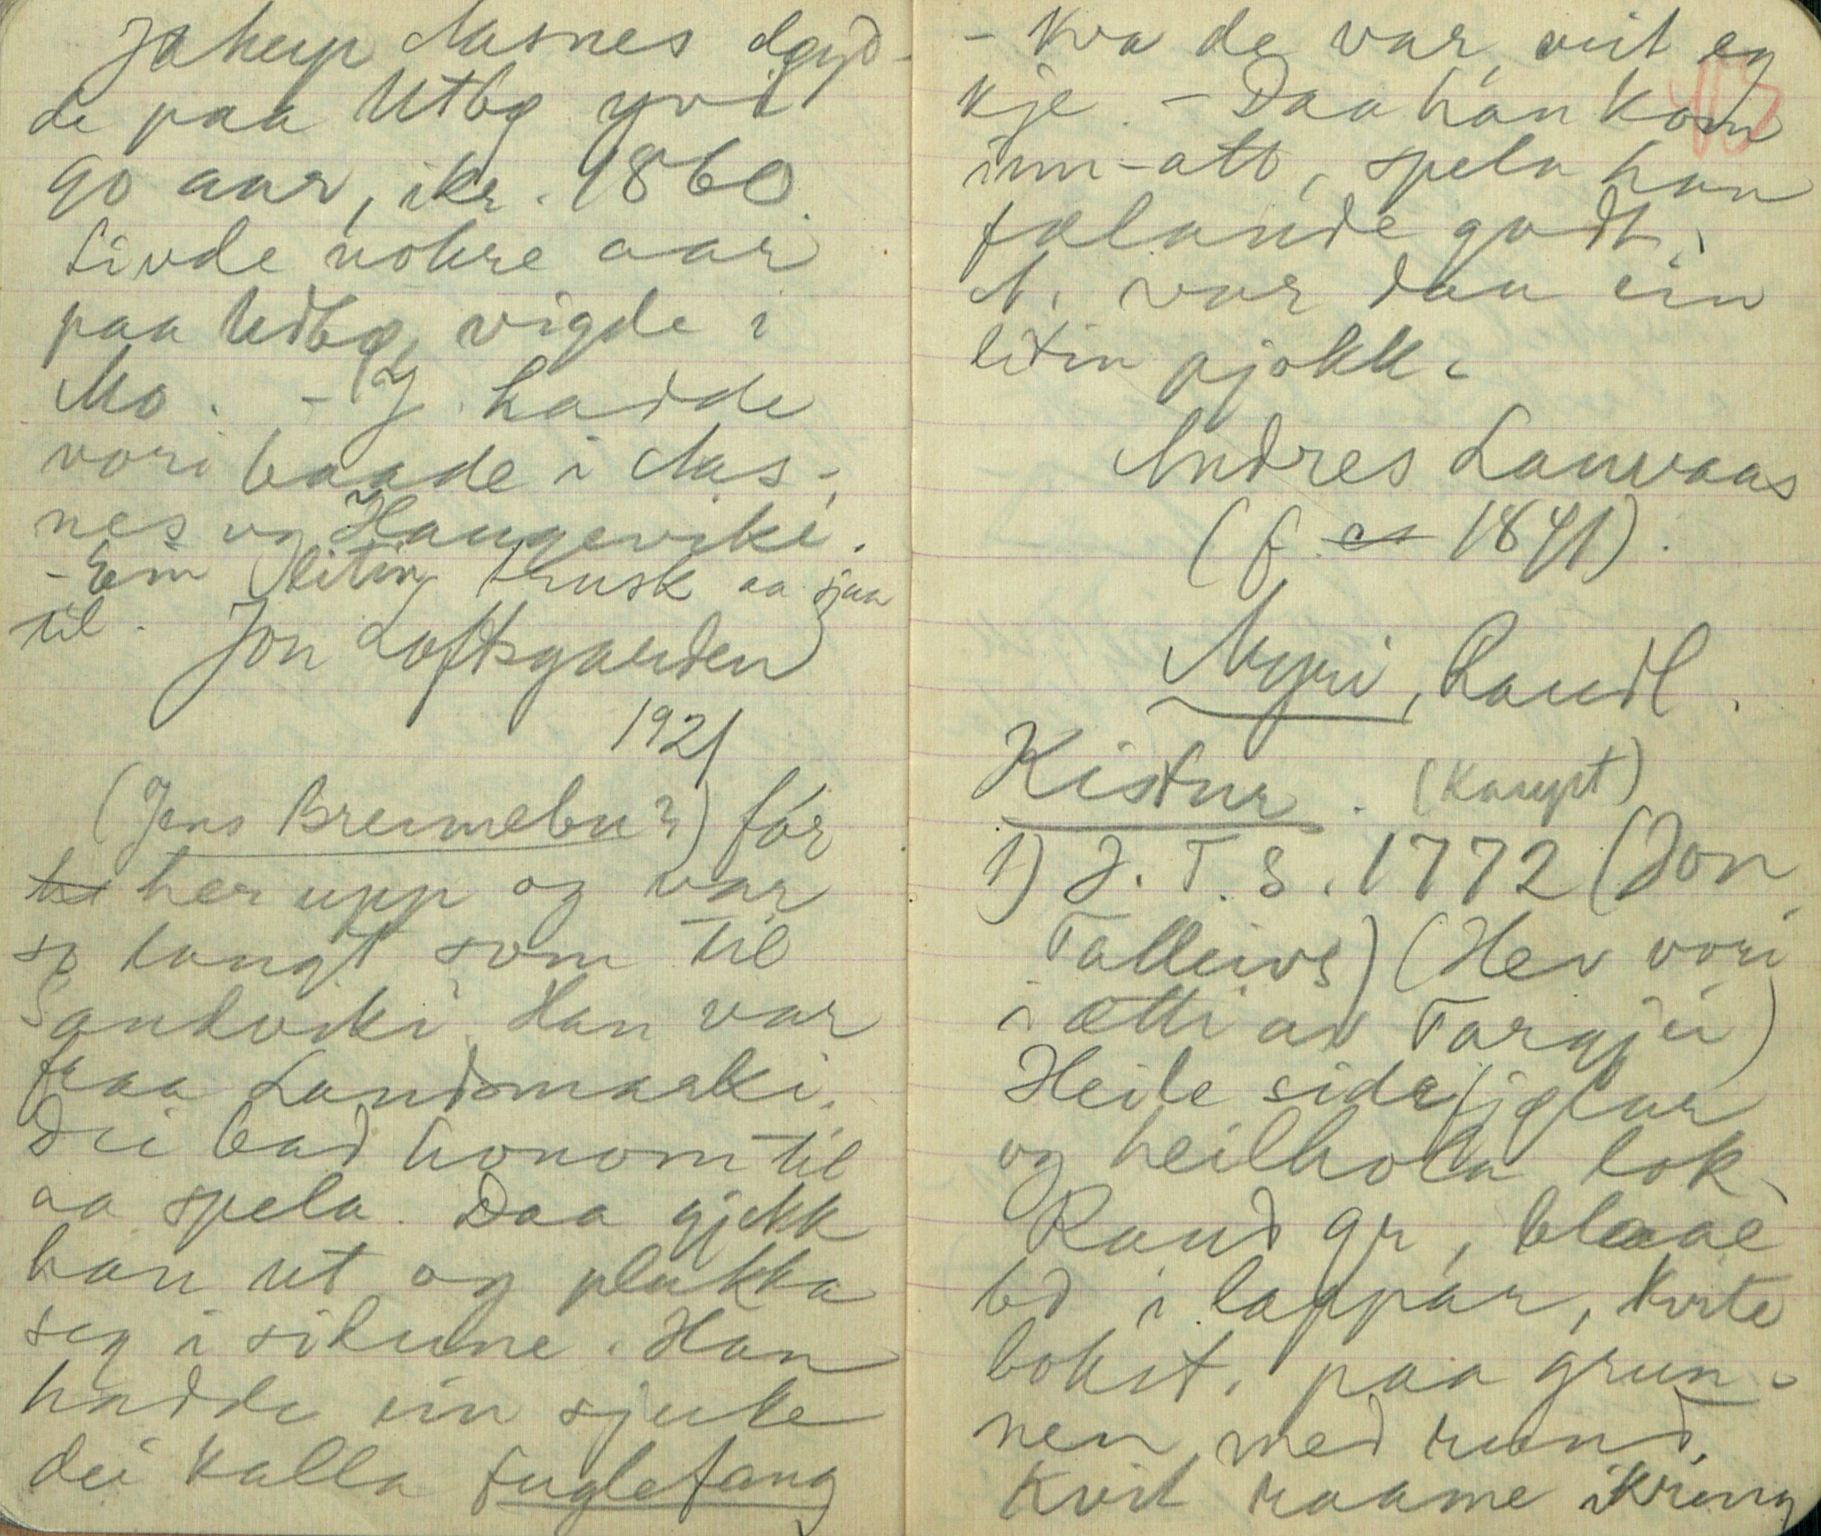 Jakup Aasnes døyd-
de paa Utbø yvi
90 aar, ikr. 1860.
Livde nokre aar
paa Udbø, vigde i
Mo. - J hadde
vori baade i Aas-
nes og Haugeviki.
- Ein litin trusk aa sjaa
til. Jon Loftsgarden
1921
(Jens Breimebu?) fór
her upp og var
so langt som til
Sandviki. Han var
fraa Landsmarki.
Dei bad honom til
aa spela. Daa gjekk
han ut og plukka
seg i sidune. Han
hadde ein sjuke
dei kalla fuglefang
- Kva de var, veit eg
kje. - Daa han kom
inn-att, spela han
fælande godt.
A. var daa ein
litin gjokk.
Andres Lauvaas
(f. ca 1841).
Myri, Raudl.
Kistur. (Kaupt)
1) J. T. S. 1772 (Jon
Talleivs) (Hev vori
i ætti av Targjei)
Heile sidefjølar
og heilhola lok.
Raud gr, blaae
bd i lappar, kvite
bokst. paa grun-
nen med rund,
kvit raame ikring